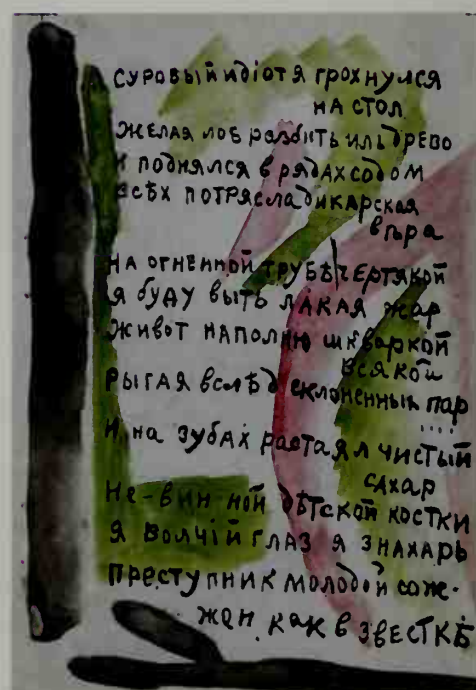 СУРОВЫЙ ИДІОТ Я ГРОХНУЛСЯ
НА СТОЛ
ЖЕЛАЯ ЛОБ РАЗБИТЬ ИЛЬ ДРЕВО
И ПОДНЯЛСЯ В РЯДАХ СОДОМ
ВСѢХ ПОТРЯСЛА ДИКАРСКАЯ
ВѢРА
НА ОГНЕННОЙ ТРУБѢ ЧЕРТЯКОЙ
Я БУДУ ВЫТЬ ЛАКАЯ ЖАР
ЖИВОТ НАПОЛНЮ ШКВАРКОЙ
ВСЯКОЙ
РЫГАЯ ВСЛѢД СКЛОНЕННЫХ ПАР
....
И НА ЗУБАХ РАСТАЯЛ ЧИСТЫЙ
САХАР
НЕ-ВИН-НОЙ ДѢТСКОЙ КОСТКИ
Я ВОЛЧІЙ ГЛАЗ Я ЗНАХАРЬ
ПРЕСТУПНИК МОЛОДОЙ СОЖ-
ЖЕН КАК В ЗВЕСТКѢ